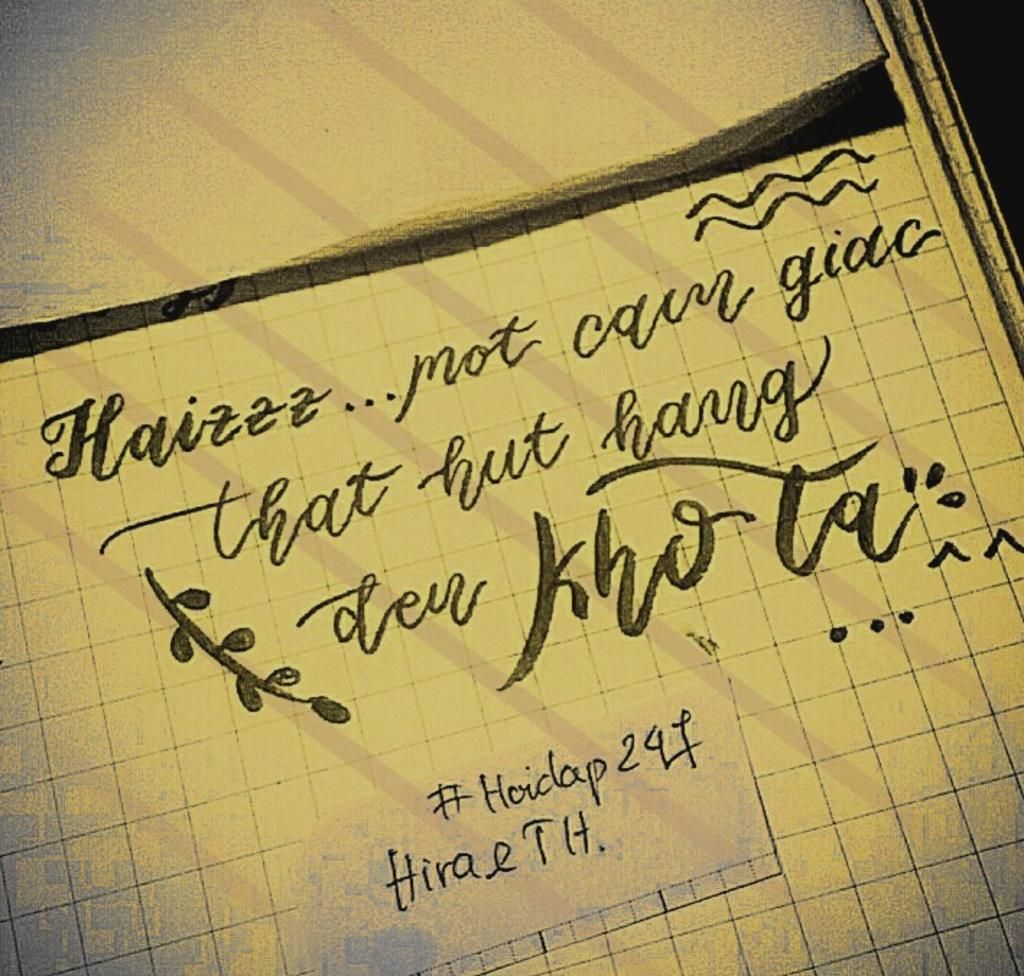 Haizzz...mot cam giac
that hut hang
den kho ta
...
#Hoidap247
HiraeTH.